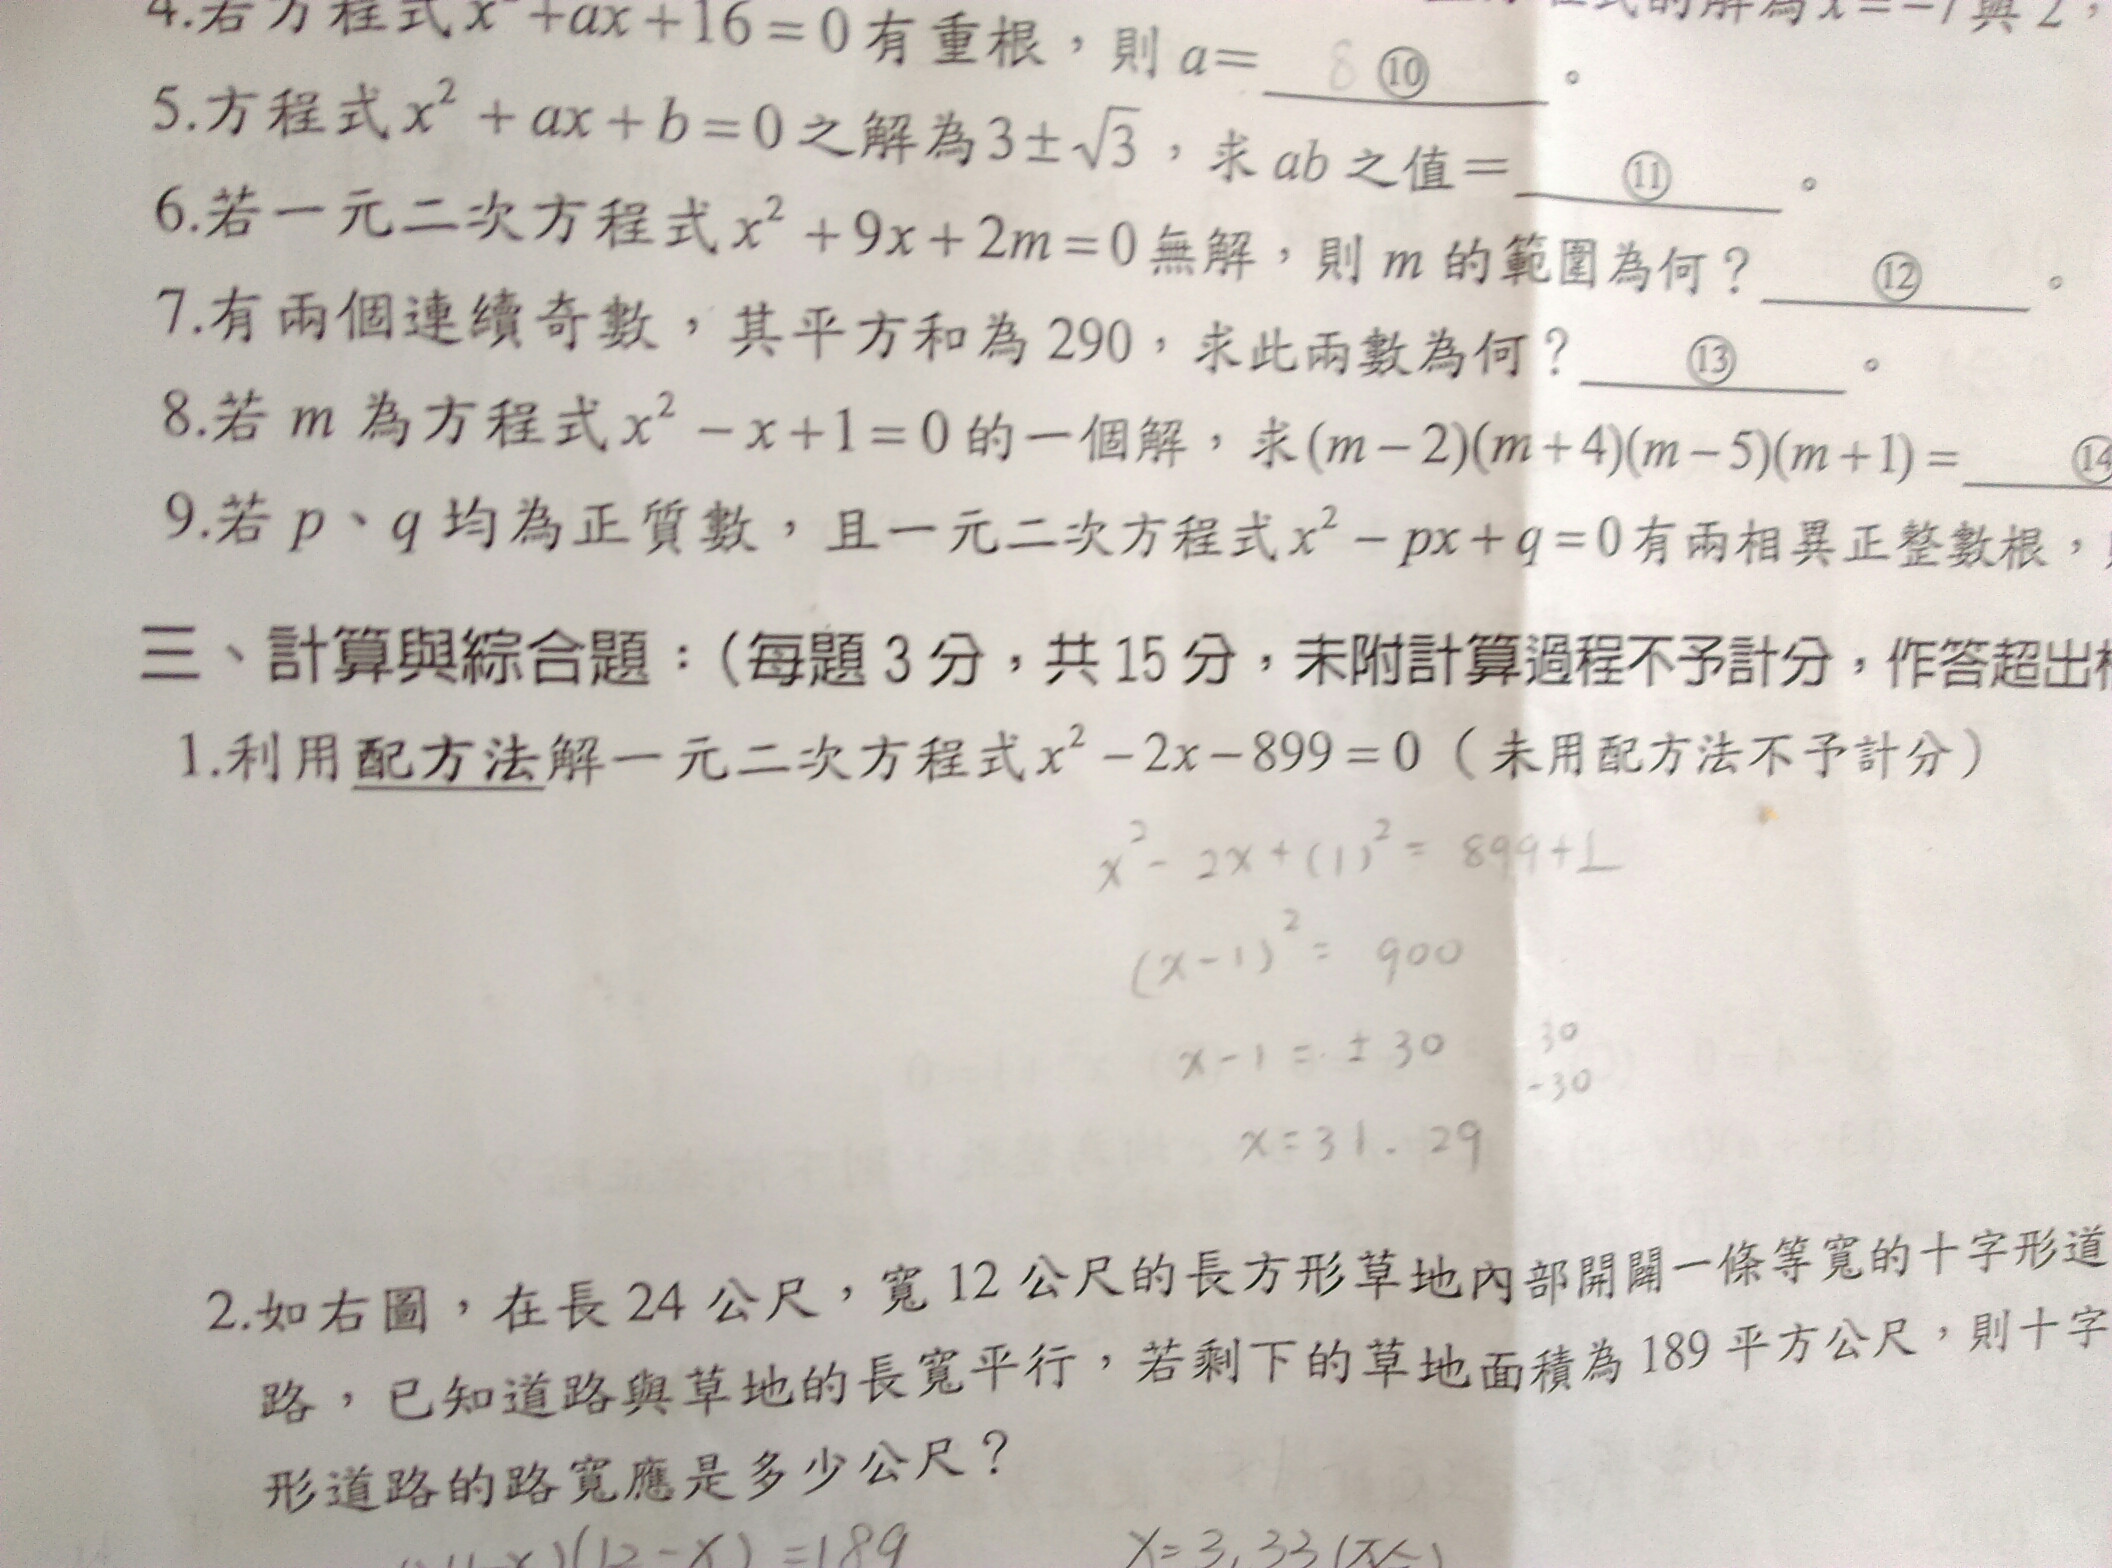 4.若方程式x²+ax+16=0有重根,則a= 8 ⑩ 。
程式的解為x=-7與2,
5.方程式x²+ax+b=0之解為3±√3,求ab之值= ⑪ 。
6.若一元二次方程式x²+9x+2m=0無解,則m的範圍為何? ⑫ 。
7.有兩個連續奇數,其平方和為290,求此兩數為何? ⑬ 。
8.若m為方程式x²-x+1=0的一個解,求(m-2)(m+4)(m-5)(m+1)= ⑭
9.若p、q均為正質數,且一元二次方程式x²-px+q=0有兩相異正整數根,
三、計算與綜合題:(每題3分,共15分,未附計算過程不予計分,作答超出
1.利用配方法解一元二次方程式x²-2x-899=0(未用配方法不予計分)
x²-2x+(1)²=899+1
(x-1)²=900
x-1=±30 30
-30
x=31.29
2.如右圖,在長24公尺,寬12公尺的長方形草地內部開闢一條等寬的十字形道
路,已知道路與草地的長寬平行,若剩下的草地面積為189平方公尺,則十字
形道路的路寬應是多少公尺?
(12-x)=189 x=3,33(不合)